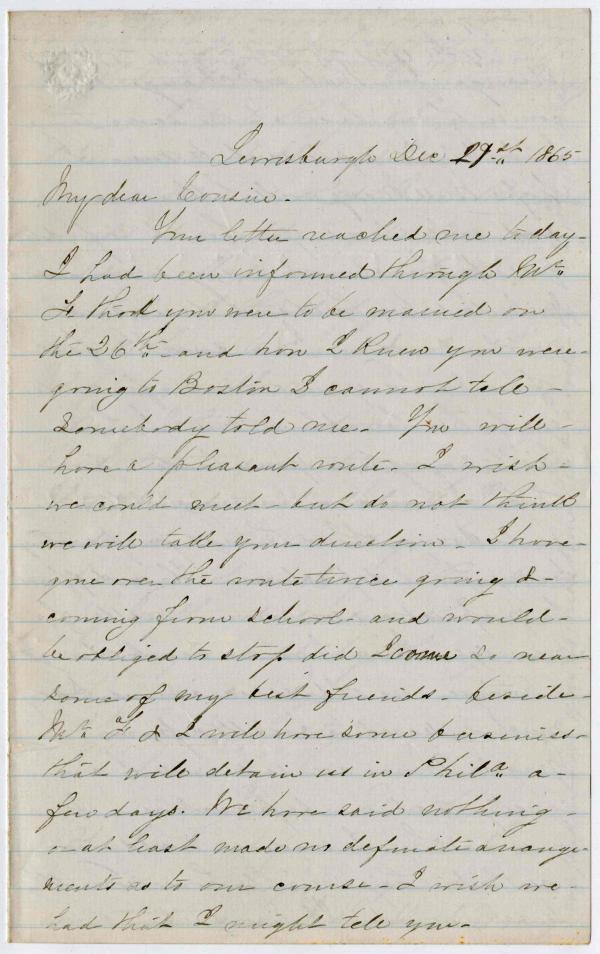 Lewisburgh Dec 21st 1865
My dear Cousin.
Your letter reached me to day-
I had been informed through Mr.
F. that you were to be married on
the 26th - and how I knew you were-
going to Boston I cannot tell -
Somebody told me - You will -
have a pleasant route. I wish -
we could meet - but do not think
we will take your direction - I have-
gone over the route twice going & -
coming from school - and would -
be obliged to stop did I come so near
some of my best friends - beside -
Mr. F & I will have some business -
that will detain us in Phila. a -
few days. We have said nothing -
or at least made no definate arrange-
ments as to our course - I wish we -
had that I might tell you -